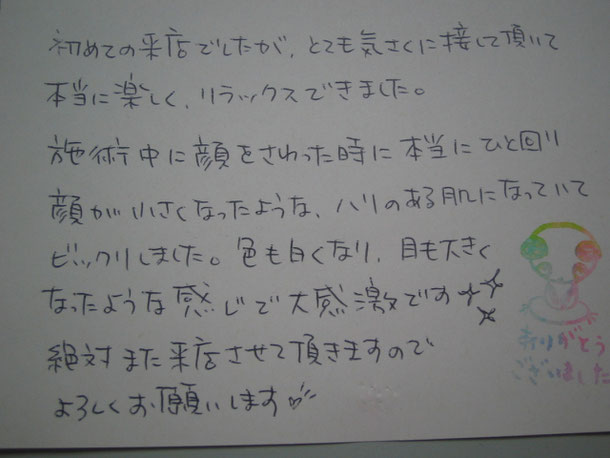 初めての来店でしたが、とても気さくに接して頂いて
本当に楽しく、リラックスできました。
施術中に顔をさわった時に本当にひと回り
顔が小さくなったような、ハリのある肌になっていて
ビックリしました。色も白くなり、目も大きく
なったような感じで大感激です
絶対また来店させて頂きますので
よろしくお願いします
ありがとう
ございました